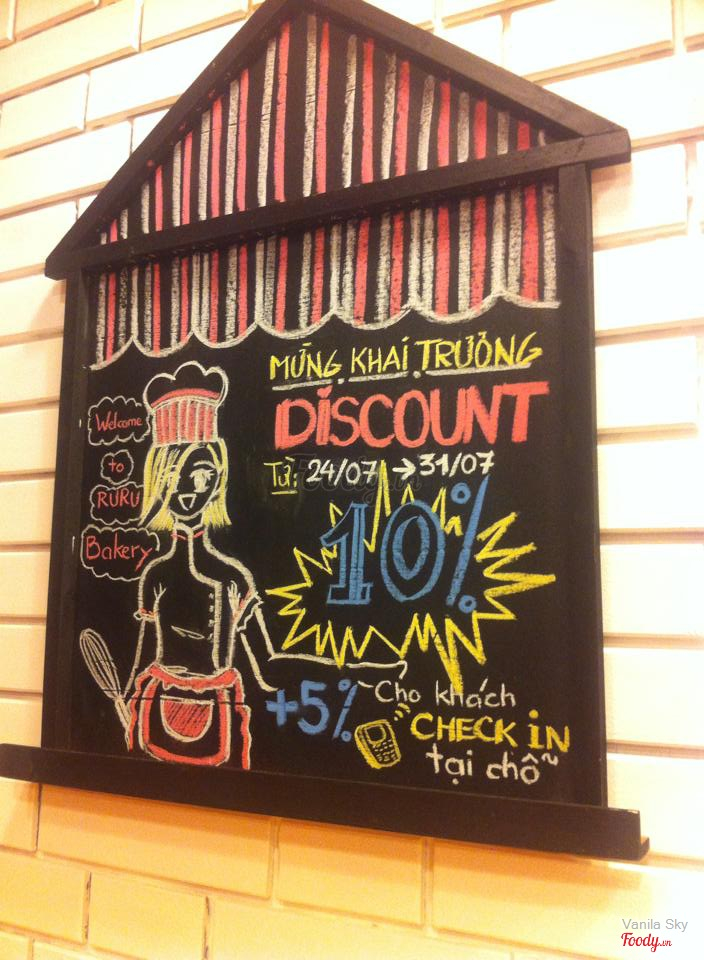 MỪNG KHAI TRƯƠNG
DISCOUNT
Từ: 24/07 → 31/07
10%
Welcome
to
RURU
Bakery
+5% Cho khách
CHECK iN
tại chỗ
Foody.vn
Vanila Sky
Foody.vn